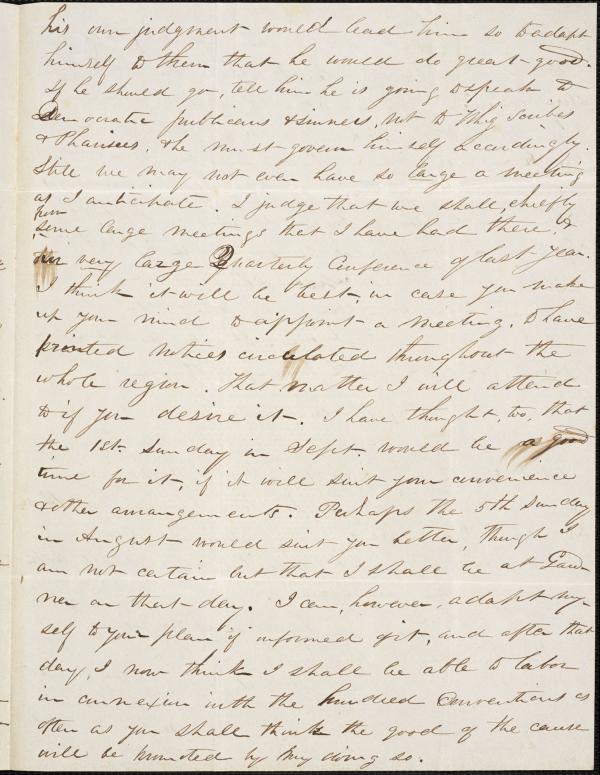 his own judgment would lead him so to adapt
himself to them that he would do great good.
If he should go, tell him he is going to speak to
Democratic publicans & sinners, not to Whig Scribes
& Pharisees, & he must govern himself accordingly.
Still we may not even have so large a meeting
as I anticipate. I judge that we shall, chiefly
from
some large meetings that I have had there, &
our very large Quarterly Conference of last year.
I think it will be best, in case you make
up your mind to appoint a meeting, to have
printed notices circulated throughout the
whole region. That matter I will attend
to if you desire it. I have thought, too, that
the 1st. Sunday in Sept. would be a good
time for it, if it will suit your convenience
& other arrangements. Perhaps the 5th Sunday
in August would suit you better, though I
am not certain but that I shall be at Gard-
ner on that day. I can, however, adapt my-
self to your plan if informed of it, and after that
day, I now think I shall be able to labor
in connexion with the hundred Conventions as
often as you shall think the good of the cause
will be promoted by my doing so.